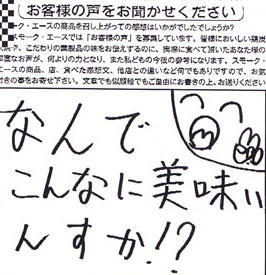 お客様の声をお聞かせください
ーク・エースの商品を召し上がっての感想はいかがでしたでしょうか?
モーク・エースでは「お客様の声」を募集しています。皆様においしい鶏炭
や、こだわりの燻製品の味をお伝えするのに、実際に食べて頂いたあなた様の
な声が、何よりの力となり、また私どもの今後の参考になります。スモーク・
エースの商品、店、食べた感想文、他店との違いなど何でもありですので、お気
きの事をお寄せ下さい。文章でも似顔絵でもご自由にお書きの上、お送りください
なんで
こんなに美味い
んすか!?